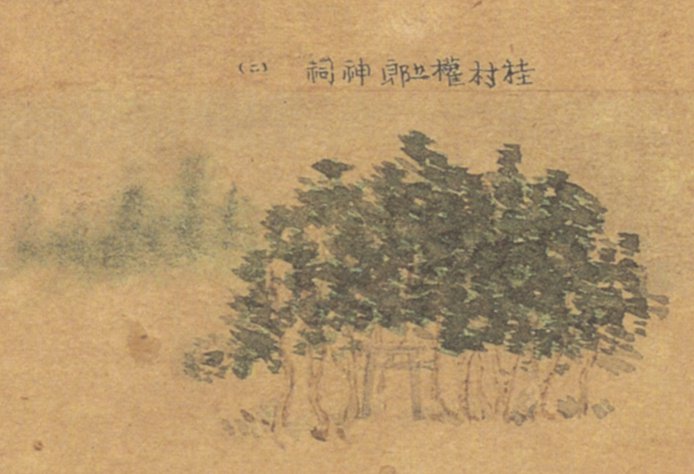 桂村權五郎神祠 (二)